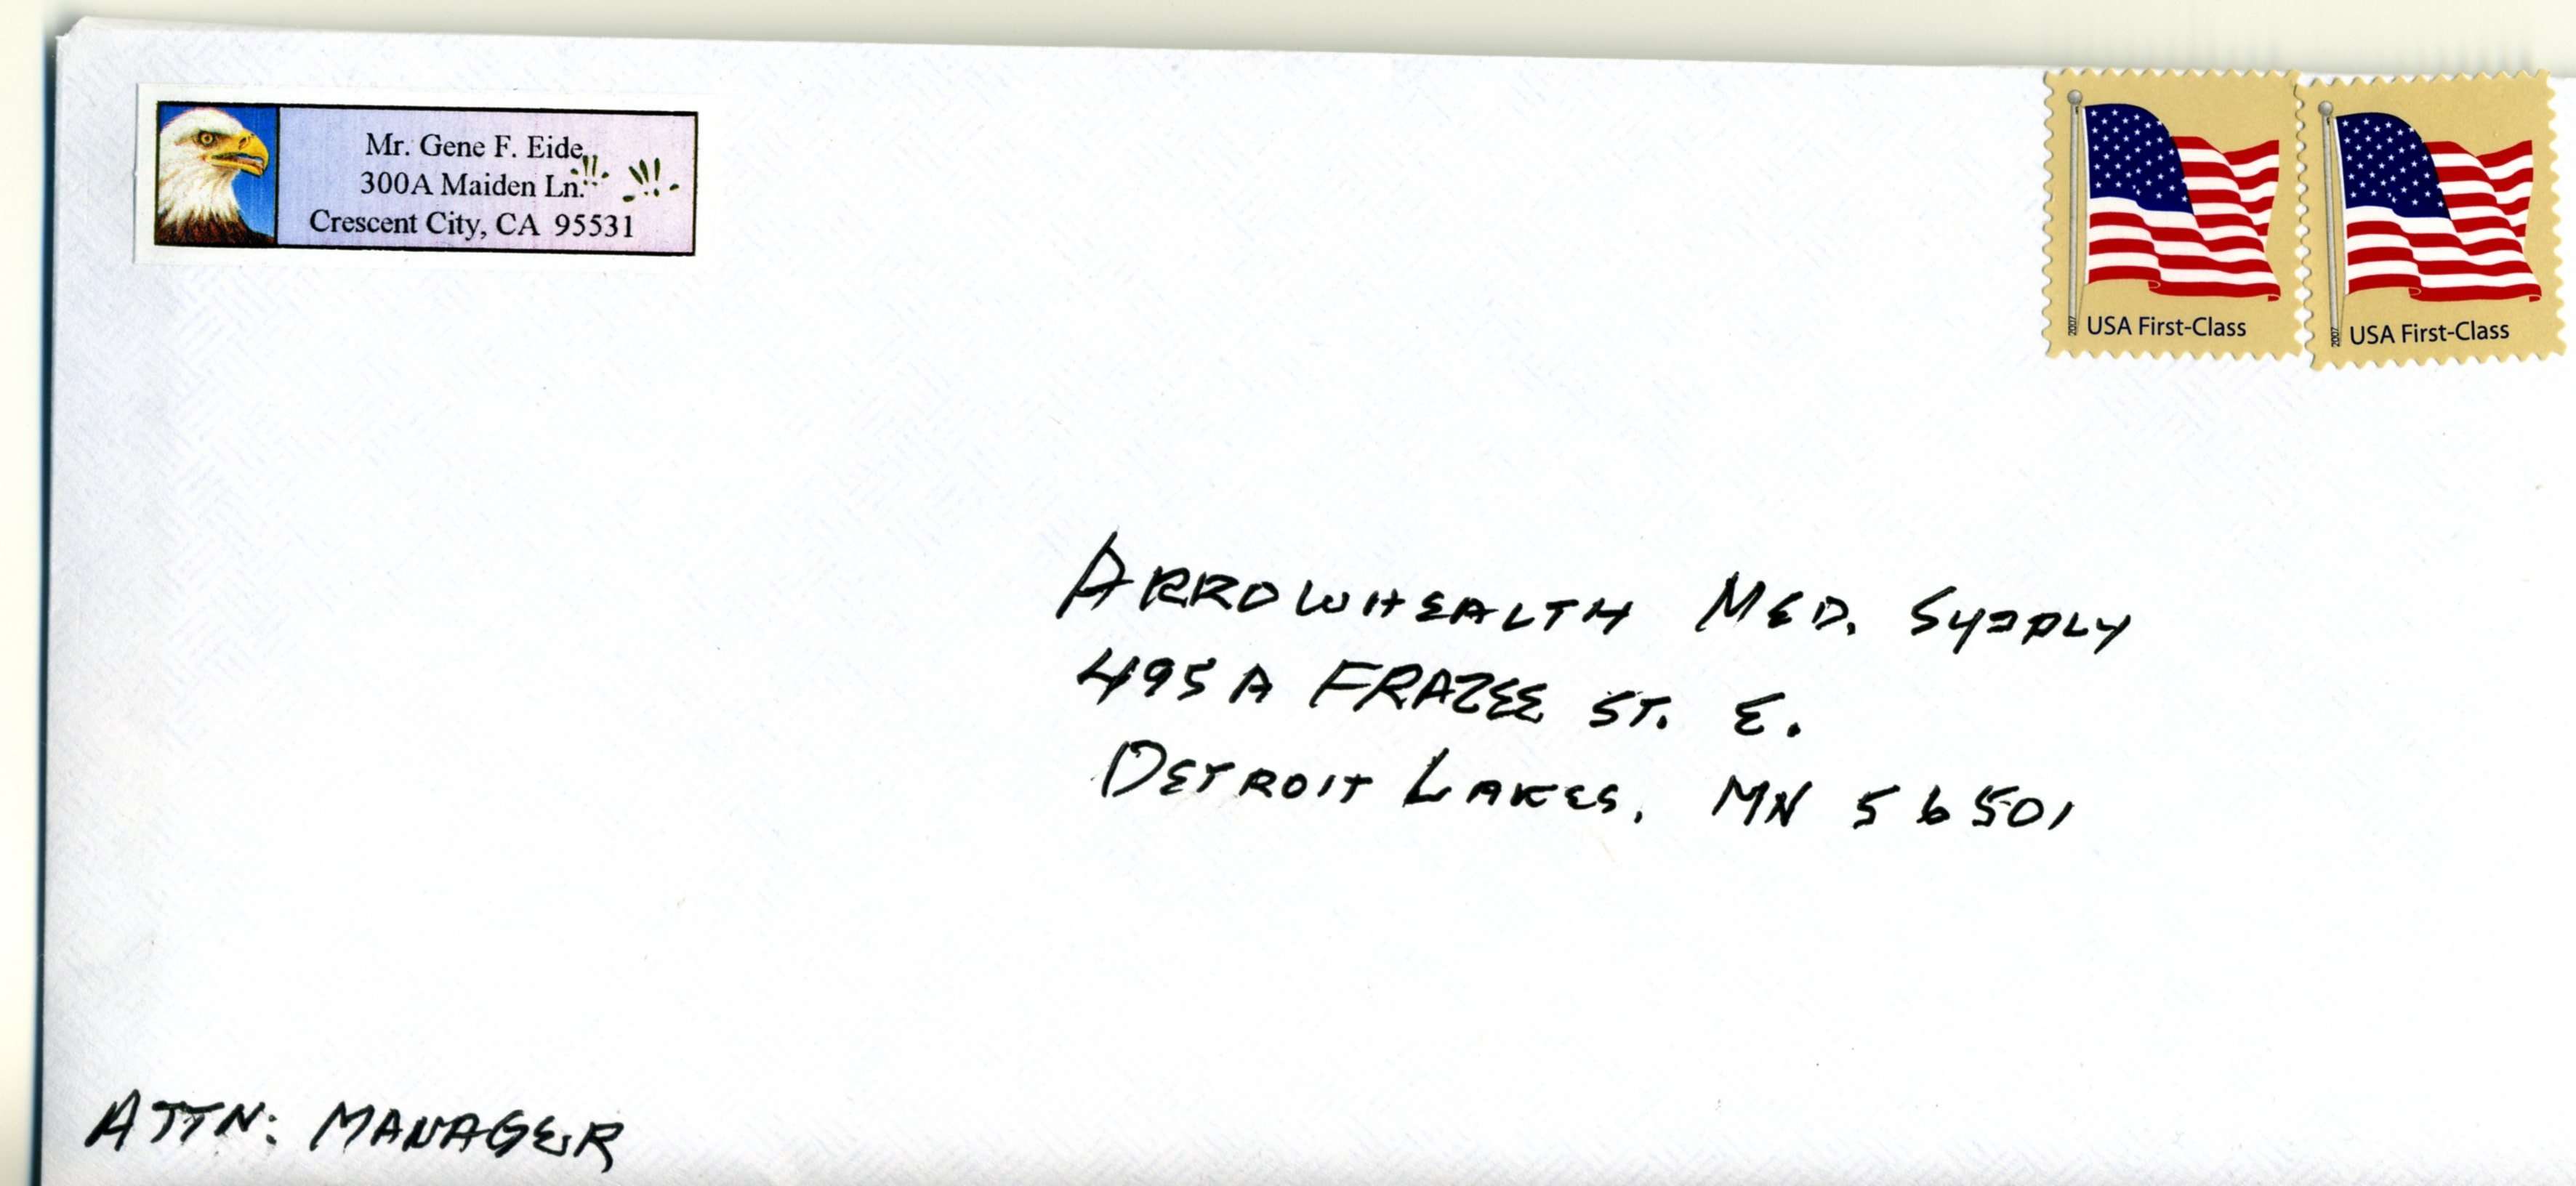 Mr. Gene F. Eide
300A Maiden Ln.
Crescent City, CA 95531
2007 USA First-Class
2007 USA First-Class
ARROWHEALTH MED. SUPPLY
495A FRAZEE ST. E.
DETROIT LAKES, MN 56501
ATTN: MANAGER